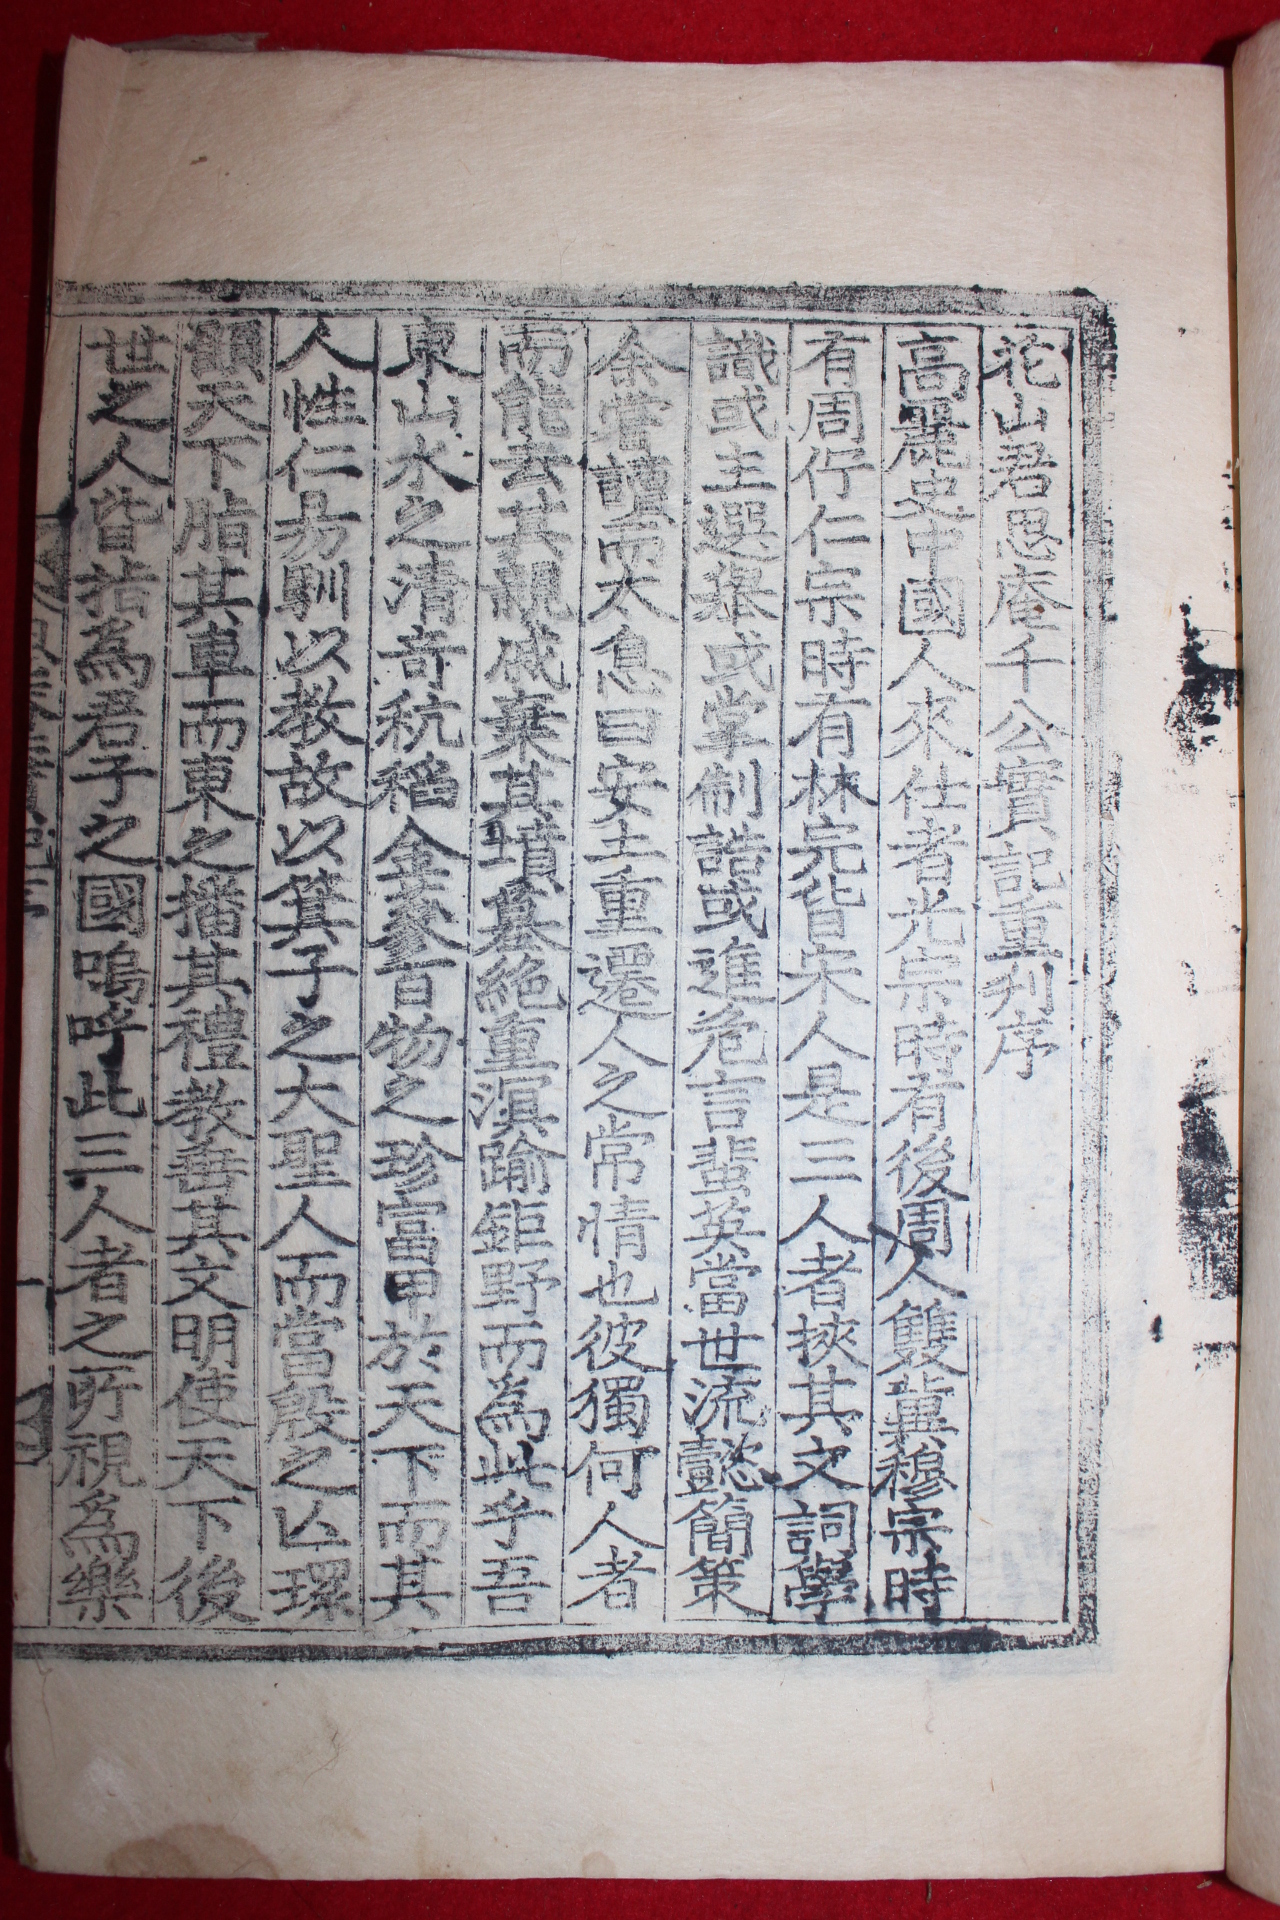 花山君思庵千公實記重刊序
高麗史中國人來仕者光宗時有後周人雙冀穆宗時
有周佇仁宗時有林完皆宋人是三人者挾其文詞學
識或主選擧或掌制誥或進危言蜚英當世流懿簡策
余嘗讀而太息曰安土重遷人之常情也彼獨何人者
而能去其親戚棄其墳墓絶重溟踰鉅野而爲此乎吾
東山水之清奇秔稻金蔘百物之珍富甲於天下而其
人性仁易馴以教故以箕子之大聖人而當殷之亾環
顧天下脂其車而東之播其禮教垂其文明使天下後
世之人皆指爲君子之國嗚呼此三人者之所視爲樂